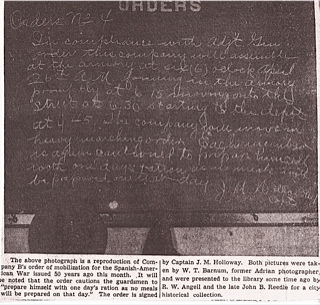 ORDERS
Orders No 4
In compliance with Adjt Gen
order this company will assemble
at the armory at six (6) o'clock April
26th A.M. forming on the armory
promptly at 6 15 moving to the
street at 6.30 starting to the depot
at 6 45. The company will move in
heavy marching order. Each guardsman
is again cautioned to prepare himself
with one day's ration as no meals
be prepared on that day
The above photograph is a reproduction of Com-
pany B's order of mobilization for the Spanish-Amer-
ican War issued 50 years ago this month. It will
be noted that the order cautions the guardsmen to
"prepare himself with one day's ration as no meals
will be prepared on that day." The order is signed
by Captain J. M. Holloway. Both pictures were tak-
en by W. T. Barnum, former Adrian photographer,
and were presented to the library some time ago by
R. W. Angell and the late John B. Reedle for a city
historical collection.